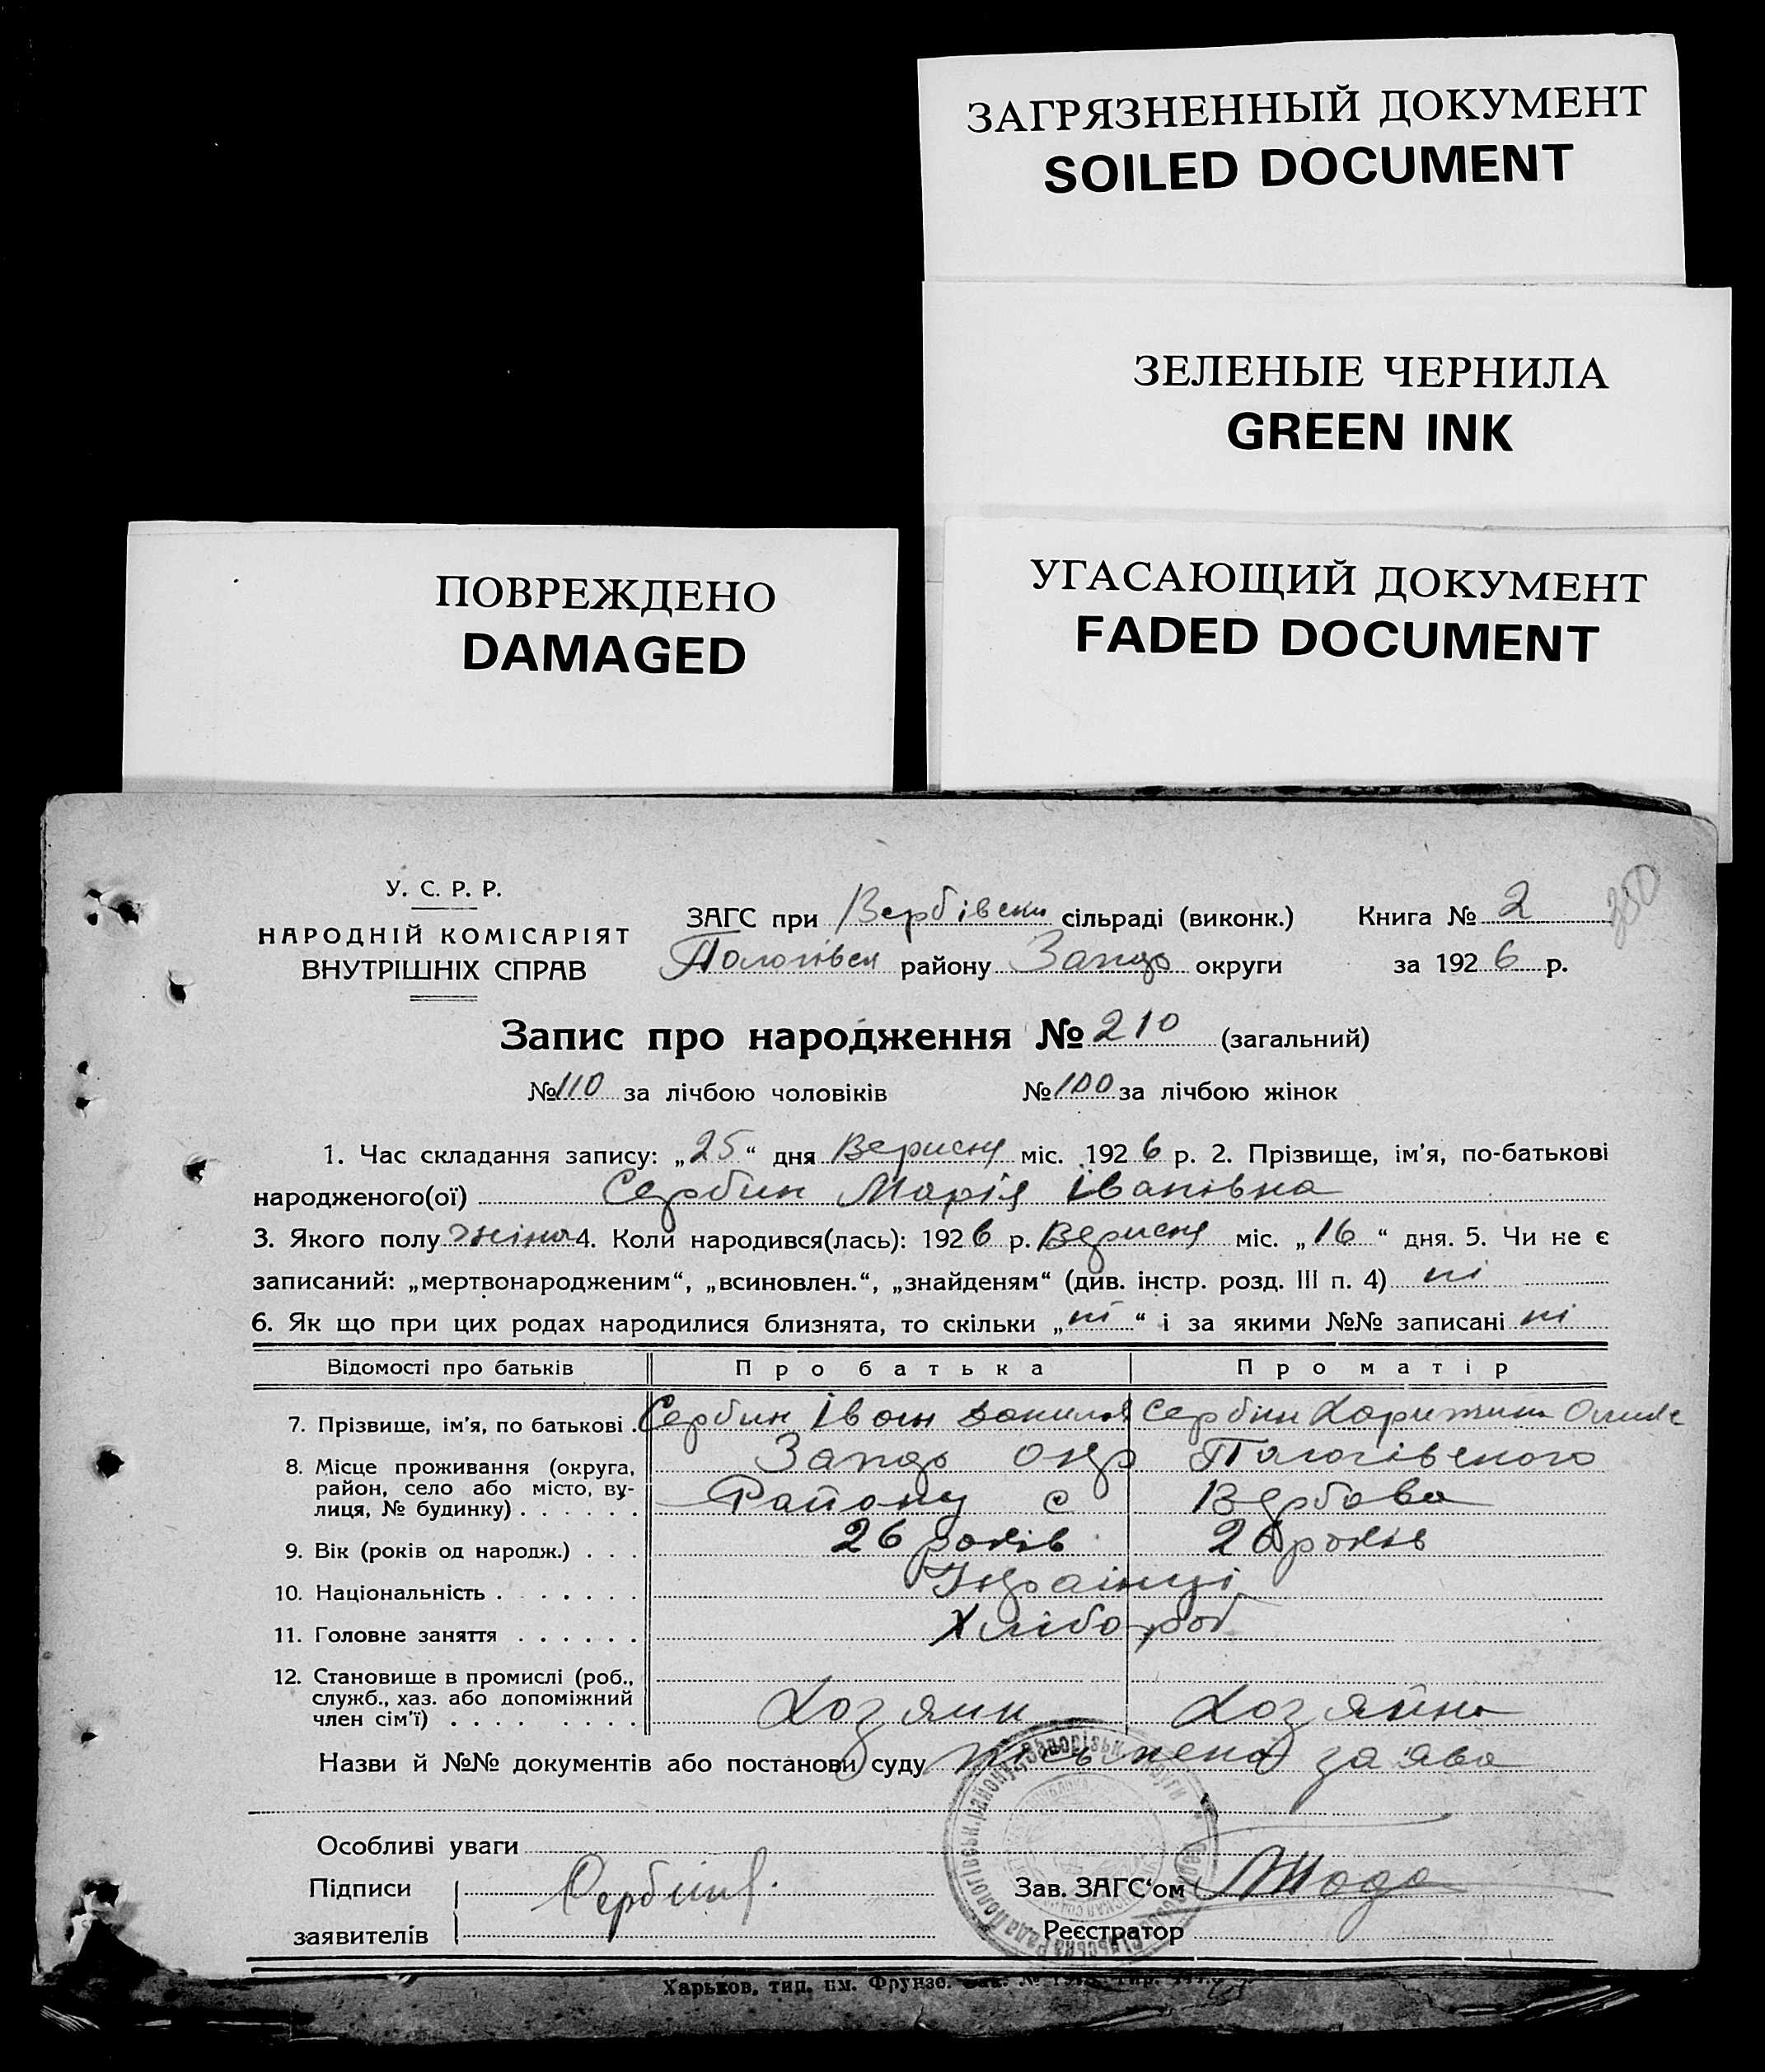 ЗАГРЯЗНЕННЫЙ ДОКУМЕНТ
SOILED DOCUMENT
ЗЕЛЕНЫЕ ЧЕРНИЛА
GREEN INK
УГАСАЮЩИЙ ДОКУМЕНТ
FADED DOCUMENT
ПОВРЕЖДЕНО
DAMAGED
350
У. С. Р. Р.
НАРОДНІЙ КОМІСАРІЯТ
ВНУТРІШНІХ СПРАВ
ЗАГС при Вербівськ сільраді (виконк.) Книга № 2
Пологівськ району Запор округи за 1926 р.
Запис про народження № 210 (загальний)
№ 110 за лічбою чоловіків № 100 за лічбою жінок
1. Час складання запису: „25“ дня Вересня міс. 1926 р. 2. Прізвище, ім'я, по-батькові
народженого(ої) Сербин Марія Іванівна
3. Якого полу жіноч 4. Коли народився(лась): 1926 р. Вересня міс. „16“ дня. 5. Чи не є
записаний: „мертвонародженим“, „всиновлен.“, „знайденям“ (див. інстр. розд. III п. 4) ні
6. Як що при цих родах народилися близнята, то скільки „ні“ і за якими №№ записані ні
Відомості про батьків Про батька Про матір
7. Прізвище, ім'я, по батькові . Сербин Іван Данилов Сербин
8. Місце проживання (округа, Запор окр Пологівського
район, село або місто, ву-
лиця, № будинку) . . . . . . Району с Вербова
9. Вік (років од народж.) . . . 26 років 26 років
10. Національність . . . . . . . Українці
11. Головне заняття . . . . . . Хлібороб
12. Становище в промислі (роб.,
служб., хаз. або допоміжний
член сім'ї) . . . . . . . . Хозяин Хозяйка
Назви й №№ документів або постанови суду письмена заява
Особливі уваги
Підписи Сербин Зав. ЗАГС'ом
заявителів Реєстратор
Харьков, тип. им. Фрунзе.